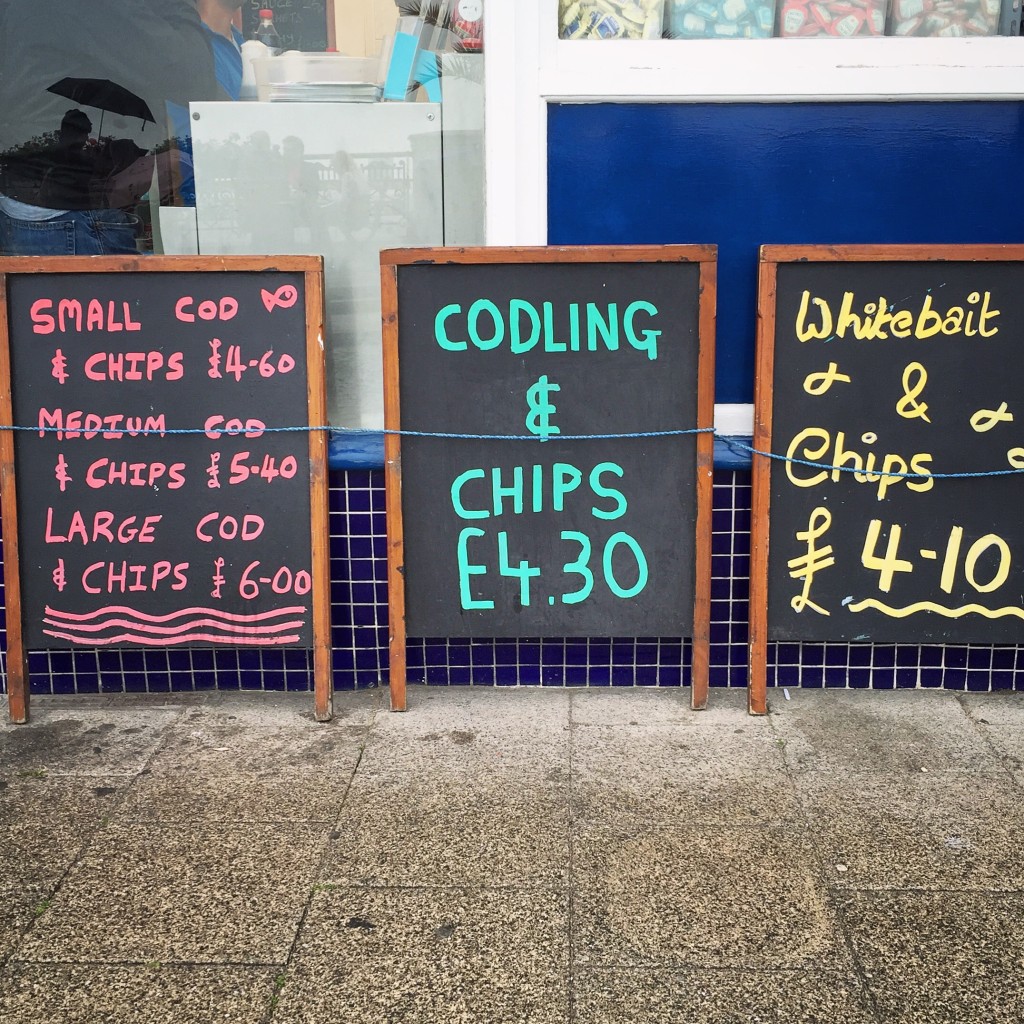 SMALL COD
& CHIPS £4-60
MEDIUM COD
& CHIPS £5-40
LARGE COD
& CHIPS £6-00
CODLING
&
CHIPS
£4.30
Whitebait
&
Chips
£4-10